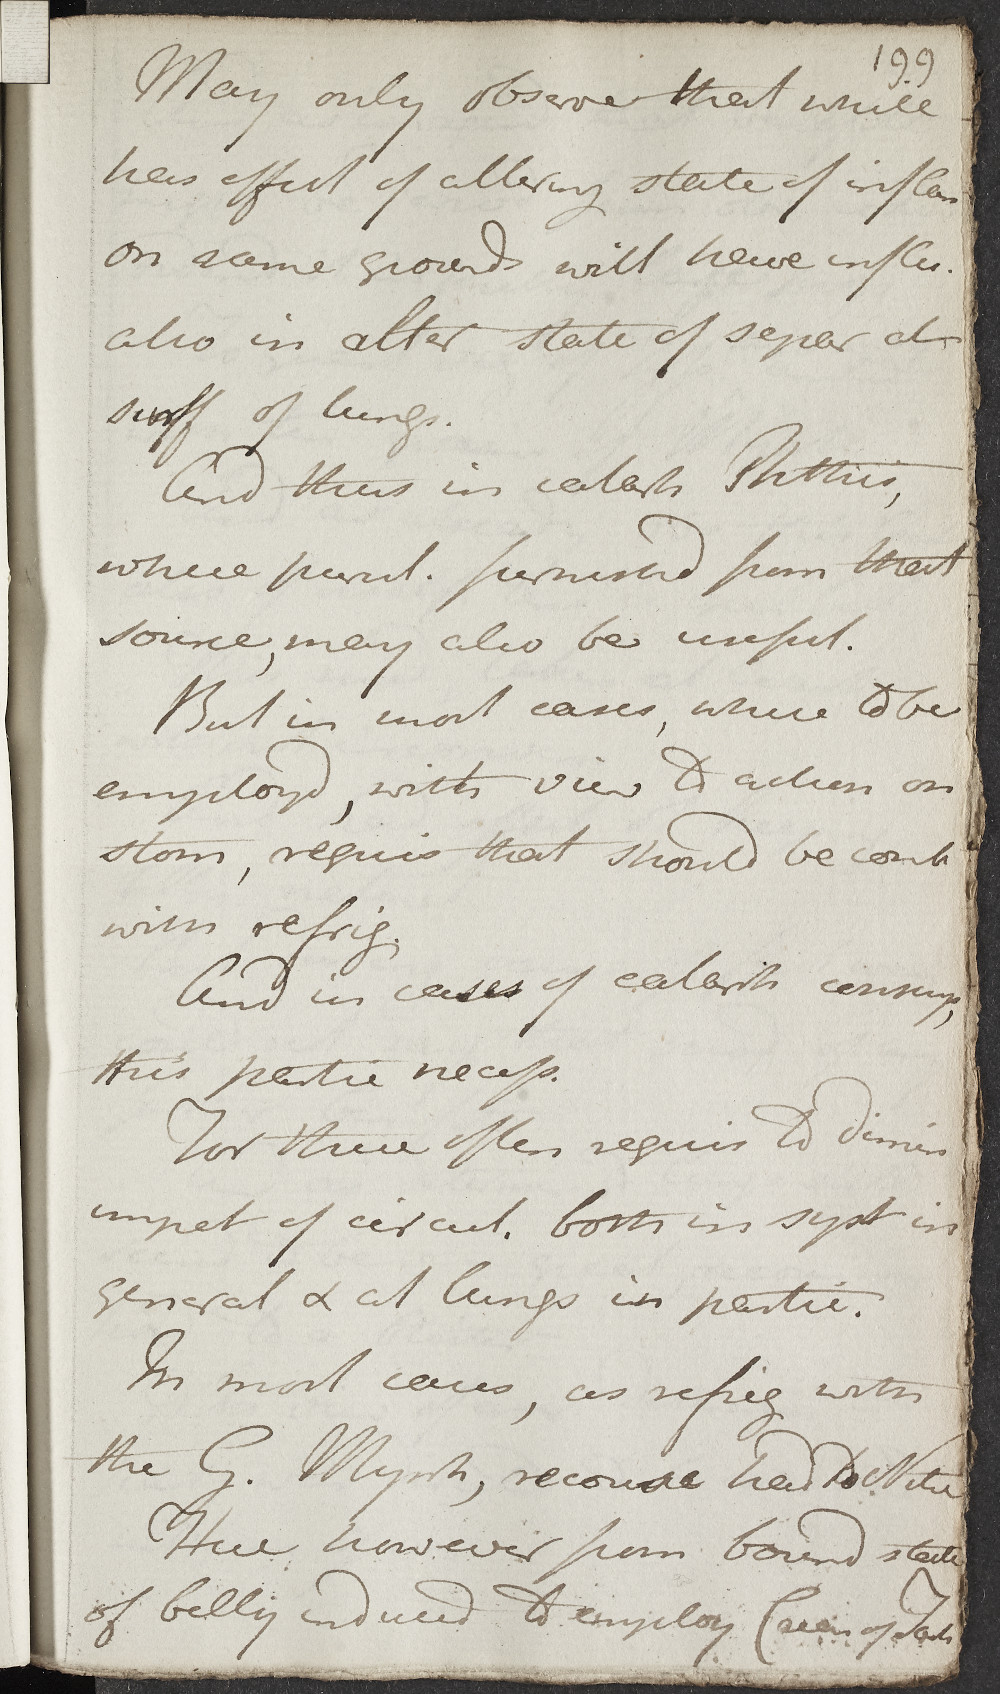 199
May only observe that while
has effect of altering state of inflam
on same grounds will have influ.
also in alter state of separ at
surff of lungs.
And thus in catarh Phthis,
where purul. furnished from that
source, may also be useful.
But in most cases, where to be
employd, with view to action on
stom, requis that should be comb
with refrig.
And in cases of catarh consump,
this partic necess.
For there often requis to dimin
impet of circul. both in syst in
general & at lungs in partic.
In most cases, as refrig with
the G. Myrrh, recourse had to Nitre
Here however from bound state
of belly induced to employ Cream of Tart